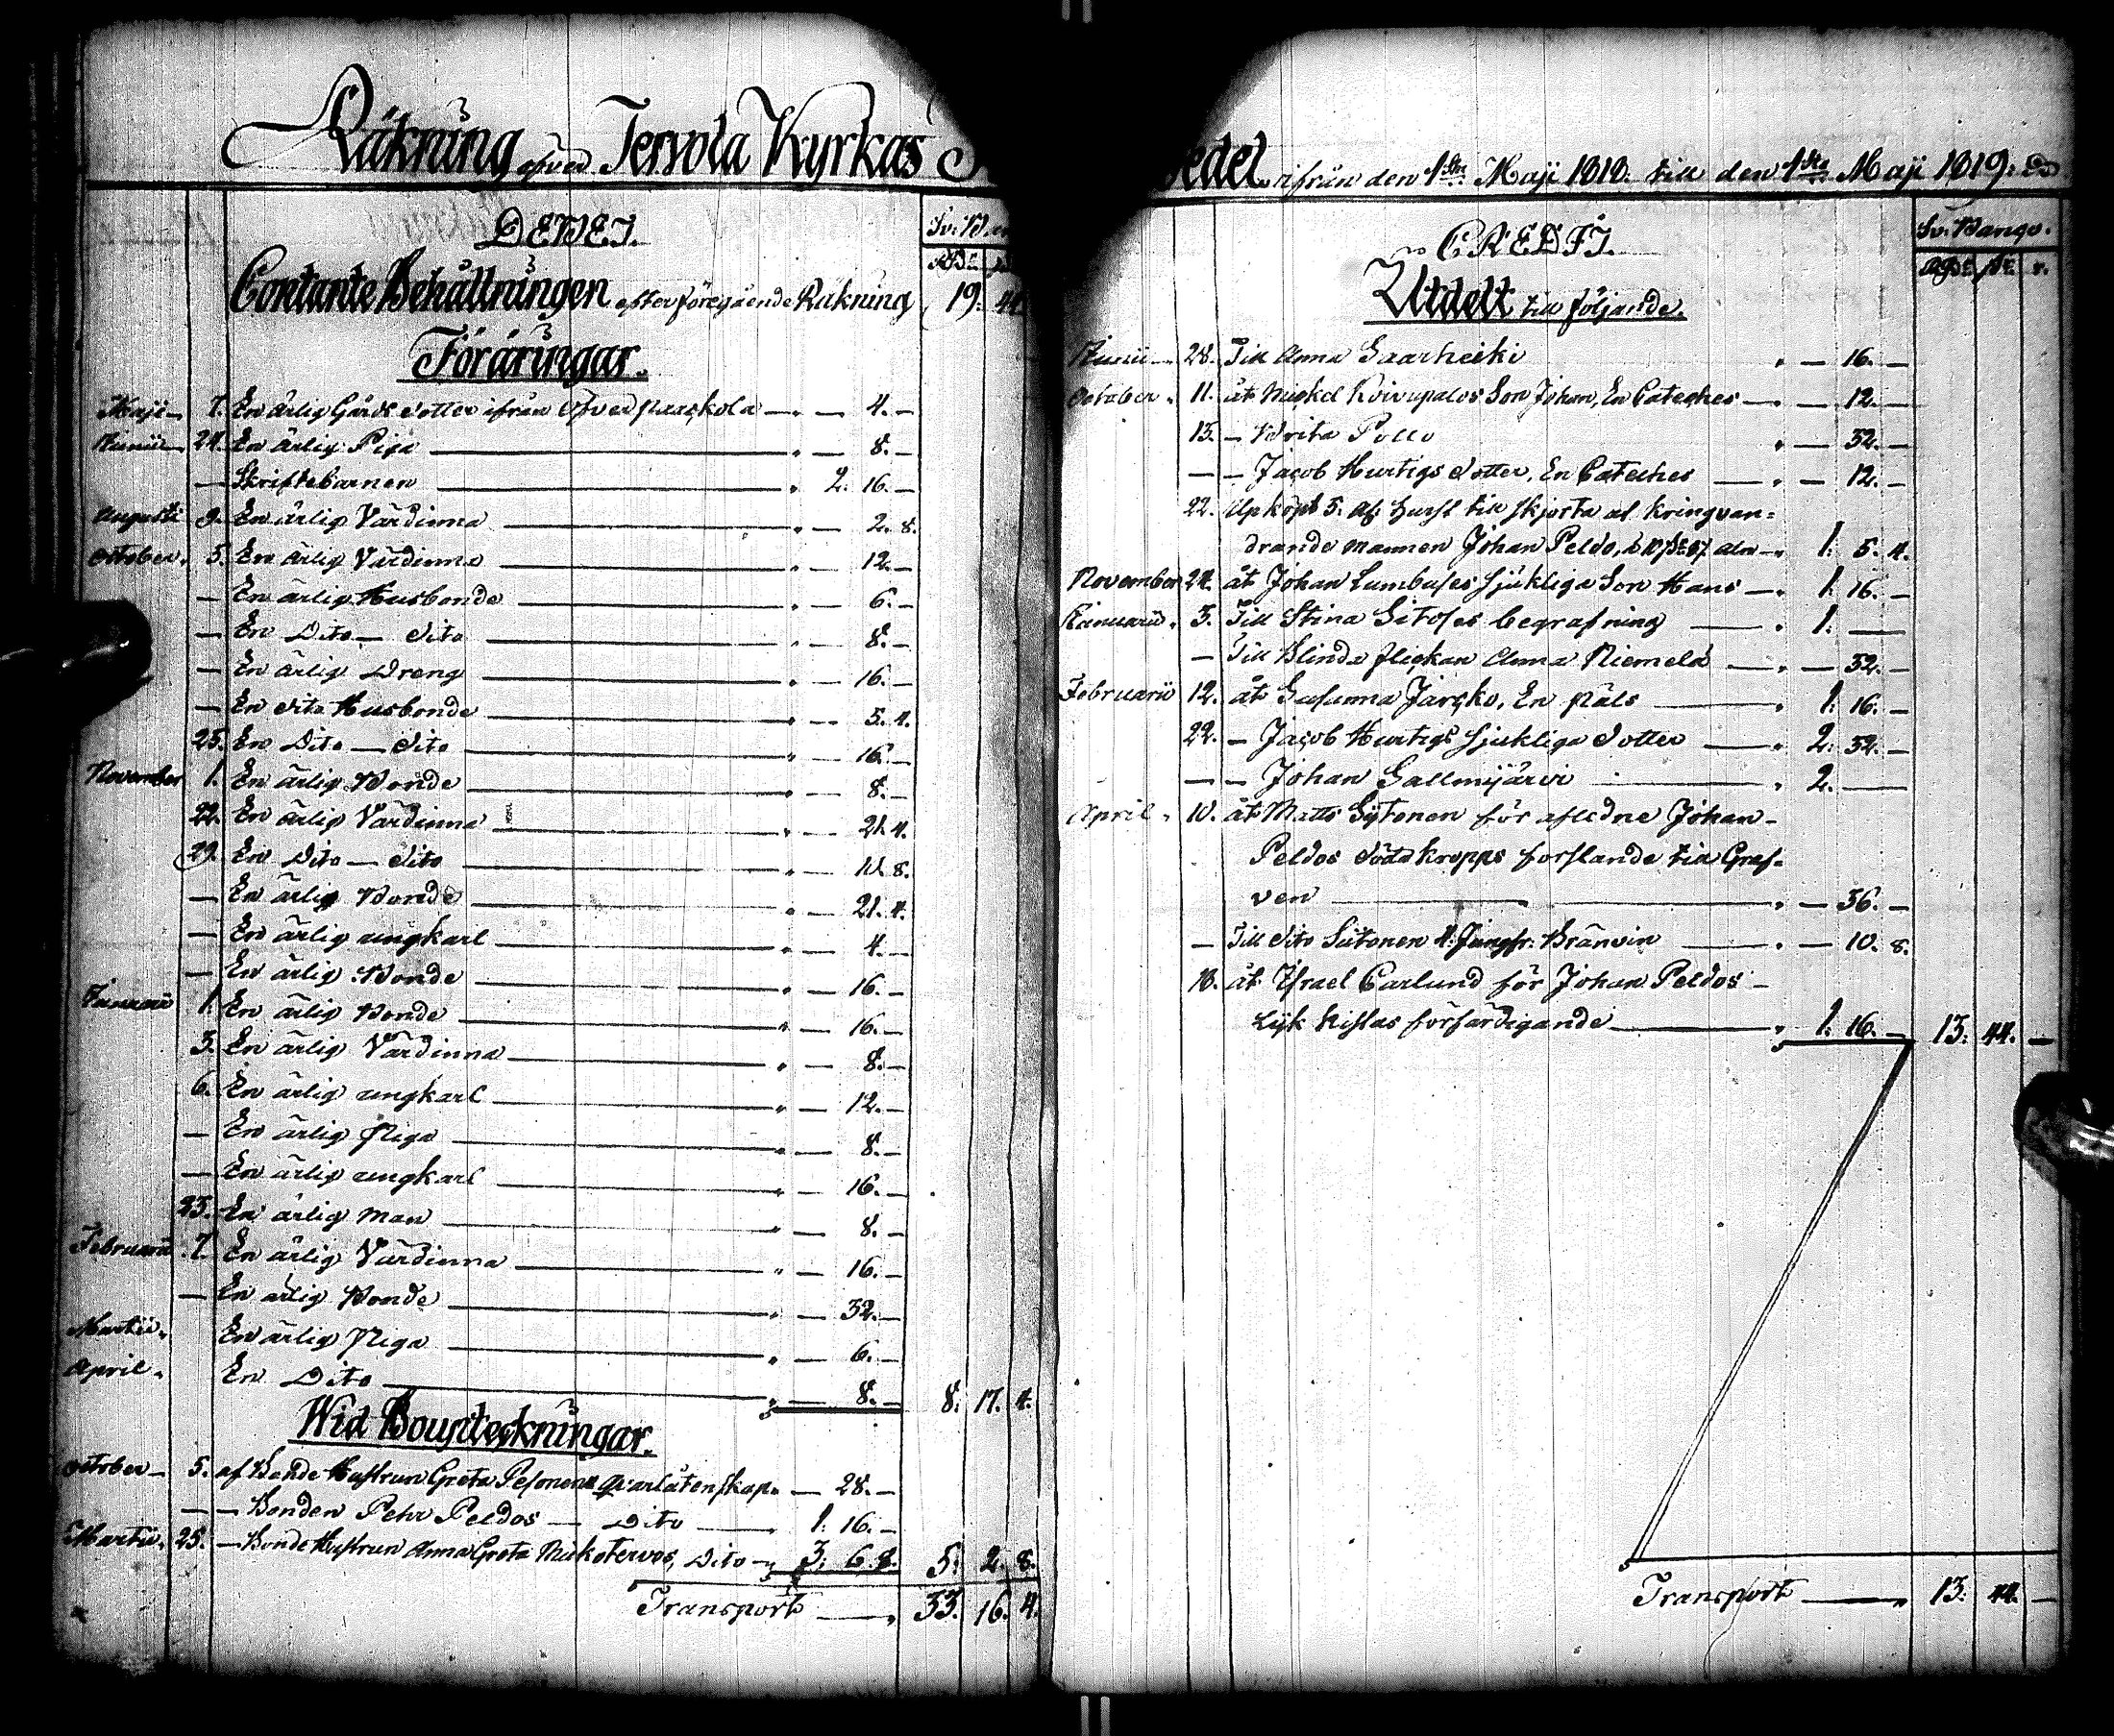 Räkning öfver Tervola Kyrkas
DEBET.
Sv. B
Contante Behållningen efter föregående Räkning 19. 44
Föräringar.
Maji 7. En ärlig Gårds dotter ifrån Öfver Paaskola — 4. —
Junii 24. En ärlig Piga — 8. —
— Skriftebarnen 2. 16. —
Augusti 9. En ärlig Värdinna — 2. 8.
October. 5. En ärlig Värdinna — 12. —
— En ärlig Husbonde — 6. —
— En Dito — Dito — 8. —
— En ärlig Dreng — 16. —
— En dito Husbonde — 5. 4.
25. En Dito — Dito — 16. —
November 1. En ärlig Bonde — 8. —
22. En ärlig Värdinna — 21. 4.
29. En Dito — Dito — 10. 8.
— En ärlig Bonde — 21. 4.
— En ärlig ungkarl — 4. —
— En ärlig Bonde — 16. —
Januarii 1. En ärlig Bonde — 16. —
3. En ärlig Värdinna — 8. —
6. En ärlig ungkarl — 12. —
— En ärlig Piga — 8. —
— En ärlig ungkarl — 16. —
23. En ärlig Man — 8. —
Februarii 7. En ärlig Värdinna — 16. —
— En ärlig Bonde — 32. —
Martii. En ärlig Piga — 6. —
April. En Dito — 8. — 8. 17. 4.
Wid Boupteckningar.
October 5. af Bonde Hustrun Greta Pesonens qvarlåtenskap. — 28. —
— — Bonden Pehr Peldos — Dito — 1. 16. —
Martii. 25. — Bonde Hustrun Anna Greta Dito — 3. 6. 8. 5. 2. 8.
Transport 33. 16. 4.
edel ifrån den 1sta Maji 1818. till den 1sta Maji 1819.
CREDIT.
Sv. Banqo.
Rdr. s. r.
Utdelt till följande.
Junii 28. Till Anna Saarheiki — 16. —
October. 11. åt Mickel Koivupalos Son Johan, En Cateches — 12. —
13. — Brita Pollo — 32. —
— — Jacob Hurtigs dotter, En Cateches — 12. —
22. Upköpt 5. al. till skjorta af kringvan=
drande mannen Johan Peldo, aln 1. 5. 4.
November 24. åt Johan Lumbuses sjukliga Son Hans 1. 16. —
Januarii. 3. Till Stina Sitoses begrafning 1. —
— Till Blinda flickan Anna Niemelä — 32. —
Februarii 12. åt Susanna Jarcko, En Päls 1. 16. —
22. — Jacob Hurtigs sjukliga dotter 2. 32. —
— — Johan Sallmijärvi 2. —
April. 10. åt Matts Sytonen för aflidne Johan
Peldos döda kropps forslande till Graf=
ven — 36. —
— Till dito Siitonen Bränvin — 10. 8.
18. åt Israel Carlund för Johan Peldos
Lijk kistas förfärdigande 1. 16. — 13. 44. —
Transport 13. 44. —